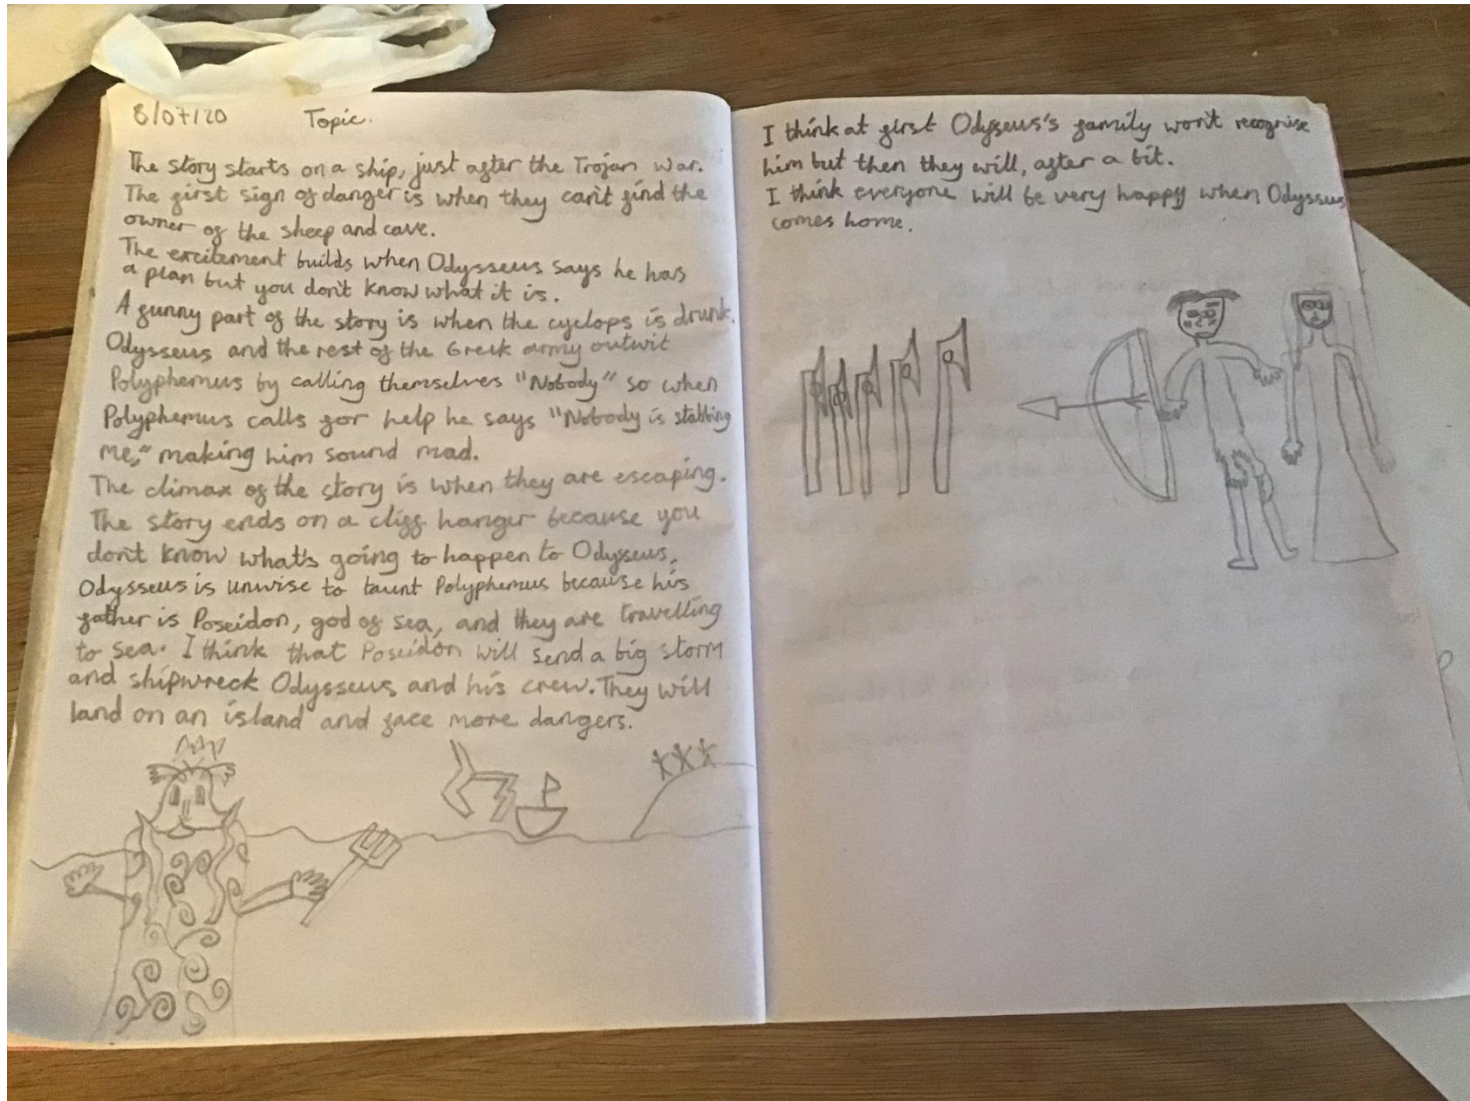 8/07/20 Topic.
The story starts on a ship, just after the Trojan War.
The first sign of danger is when they can't find the
owner of the sheep and cave.
The excitement builds when Odysseus says he has
a plan but you don't know what it is.
A funny part of the story is when the cyclops is drunk.
Odysseus and the rest of the Greek army outwit
Polyphemus by calling themselves "Nobody" so when
Polyphemus calls for help he says "Nobody is stabbing
me," making him sound mad.
The climax of the story is when they are escaping.
The story ends on a cliff hanger because you
don't know what's going to happen to Odysseus.
Odysseus is unwise to taunt Polyphemus because his
father is Poseidon, god of sea, and they are travelling
to sea. I think that Poseidon will send a big storm
and shipwreck Odysseus and his crew. They will
land on an island and face more dangers.
I think at first Odysseus's family won't recognise
him but then they will, after a bit.
I think everyone will be very happy when Odysseus
comes home.